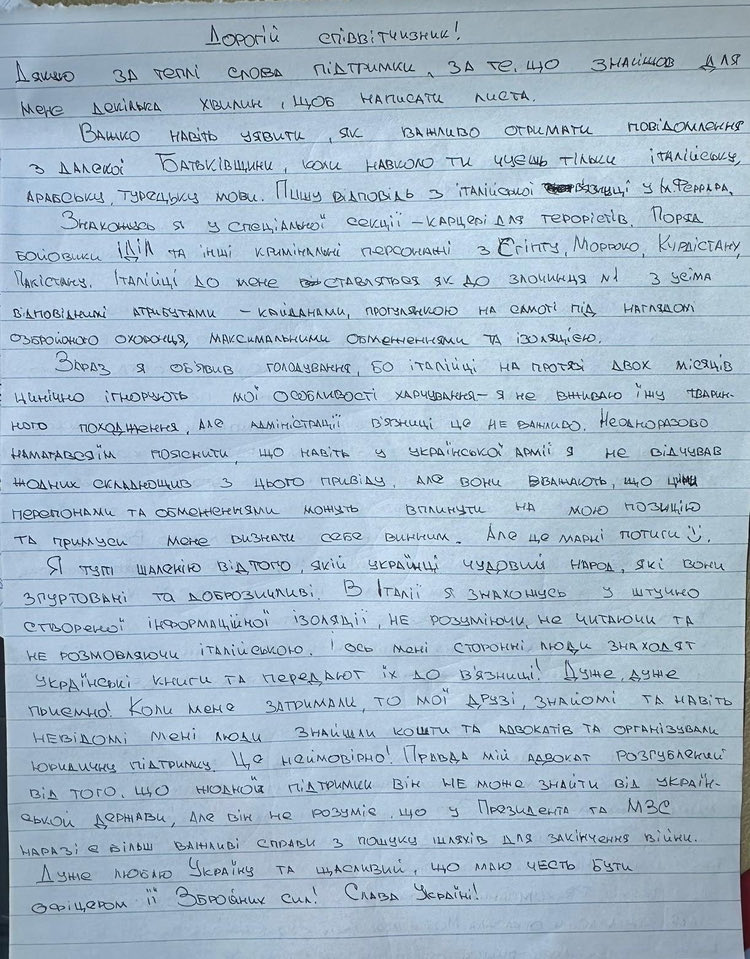 Дорогій співвітчизник!
Дякую за теплі слова підтримки, за те, що знайшов для
мене декілька хвилин, щоб написати листа.
Важко навіть уявити, як важливо отримати повідомлення
з далекої Батьківщини, коли навколо ти чуєш тільки італійську,
арабську, турецьку мови. Пишу відповідь з італійської в'язниці у м. Феррара.
Знахожусь я у спеціальної секції – карцері для терористів. Поряд
бойовики ІДІЛ та інші кримінальні персонажі з Єгіпту, Морроко, Курдістану,
Пакістану. Італійці до мене ставляться як до злочинця №1 з усіма
відповіднимі атрибутами – кайданами, прогулянкою на самоті під наглядом
озбройоного охоронця, максимальними обмеженнями та ізоляцією.
Зараз я об'явив голодування, бо італійці на протязі двох місяців
цинічно ігнорують мої особливості харчування – я не вживаю їжу тварин-
ного походження, але адміністрації в'язниці це не важливо. Неодноразово
намагався їм пояснити, що навіть у української армії я не відчував
жодних складнощив з цього приводу, але вони вважають, що ціми
перепонами та обмеженнями можуть вплинути на мою позицію
та примуси мене визнати себе винним. Але це марні потиги ☺.
Я тупі шаленію від того, якій українці чудовий народ, які вони
згуртовані та доброзичливі. В Італії я знахожусь у штучно
створеної інформаційної ізоляції, не розуміючи, не читаючи та
не розмовляючи італійською. І ось мені сторонні люди знаходят
українські книги та передают їх до в'язниці! Дуже, дуже
приємно! Коли мене затримали, то мої друзі, знайомі та навіть
невідомі мені люди знайшли кошти та адвокатів та організували
юридичну підтримку. Це неймовірно! Правда мій адвокат розгублений
від того, що жодной підтримки він не може знайти від україн-
ської держави, але він не розуміє, що у Президента та МЗС
наразі є більш важливі справи з пошуку шляхів для закінчення війни.
Дуже люблю Україну та щасливий, що маю честь бути
офіцером її Збройних сил! Слава Україні!